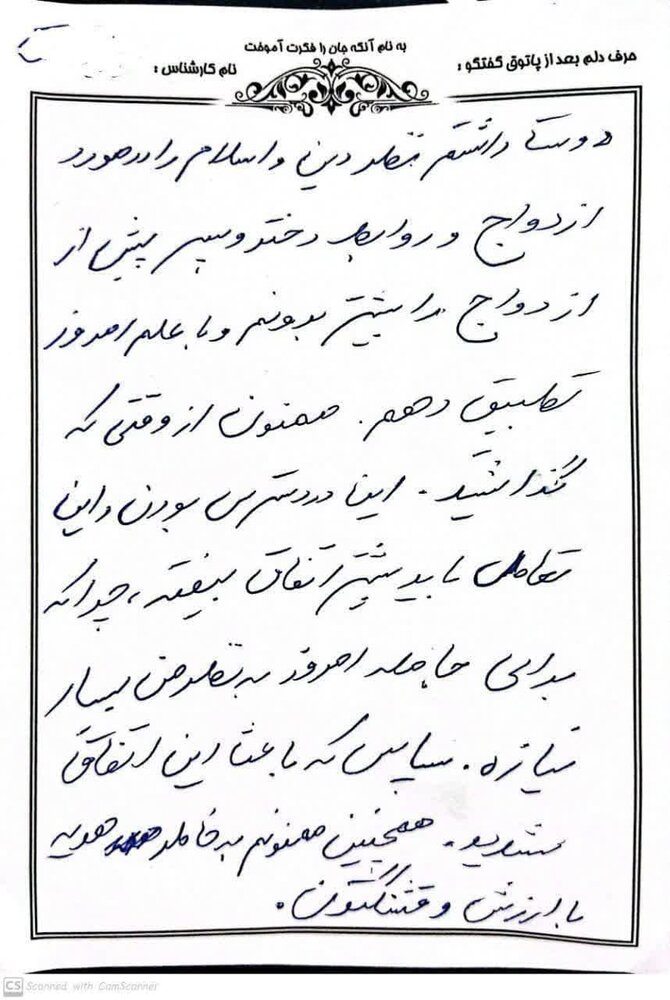 به نام آنکه جان را فکرت آموخت
حرف دلم بعد از پاتوق گفتگو :
نام کارشناس :
دوست داشتم نظر دین و اسلام را در مورد
ازدواج و روابط دختر و پسر پیش از
ازدواج را بیشتر بدونم و با علم امروز
تطبیق دهم. ممنون از وقتی که
گذاشتید. این در دسترس بودن و این
تعامل باید بیشتر اتفاق بیفته، چرا که
برای جامعه امروز به نظر من بسیار
نیازه. سپاس که باعث این اتفاق
شدید. همچنین ممنونم به خاطر هدیه
با ارزش و قشنگتون.
CS Scanned with CamScanner